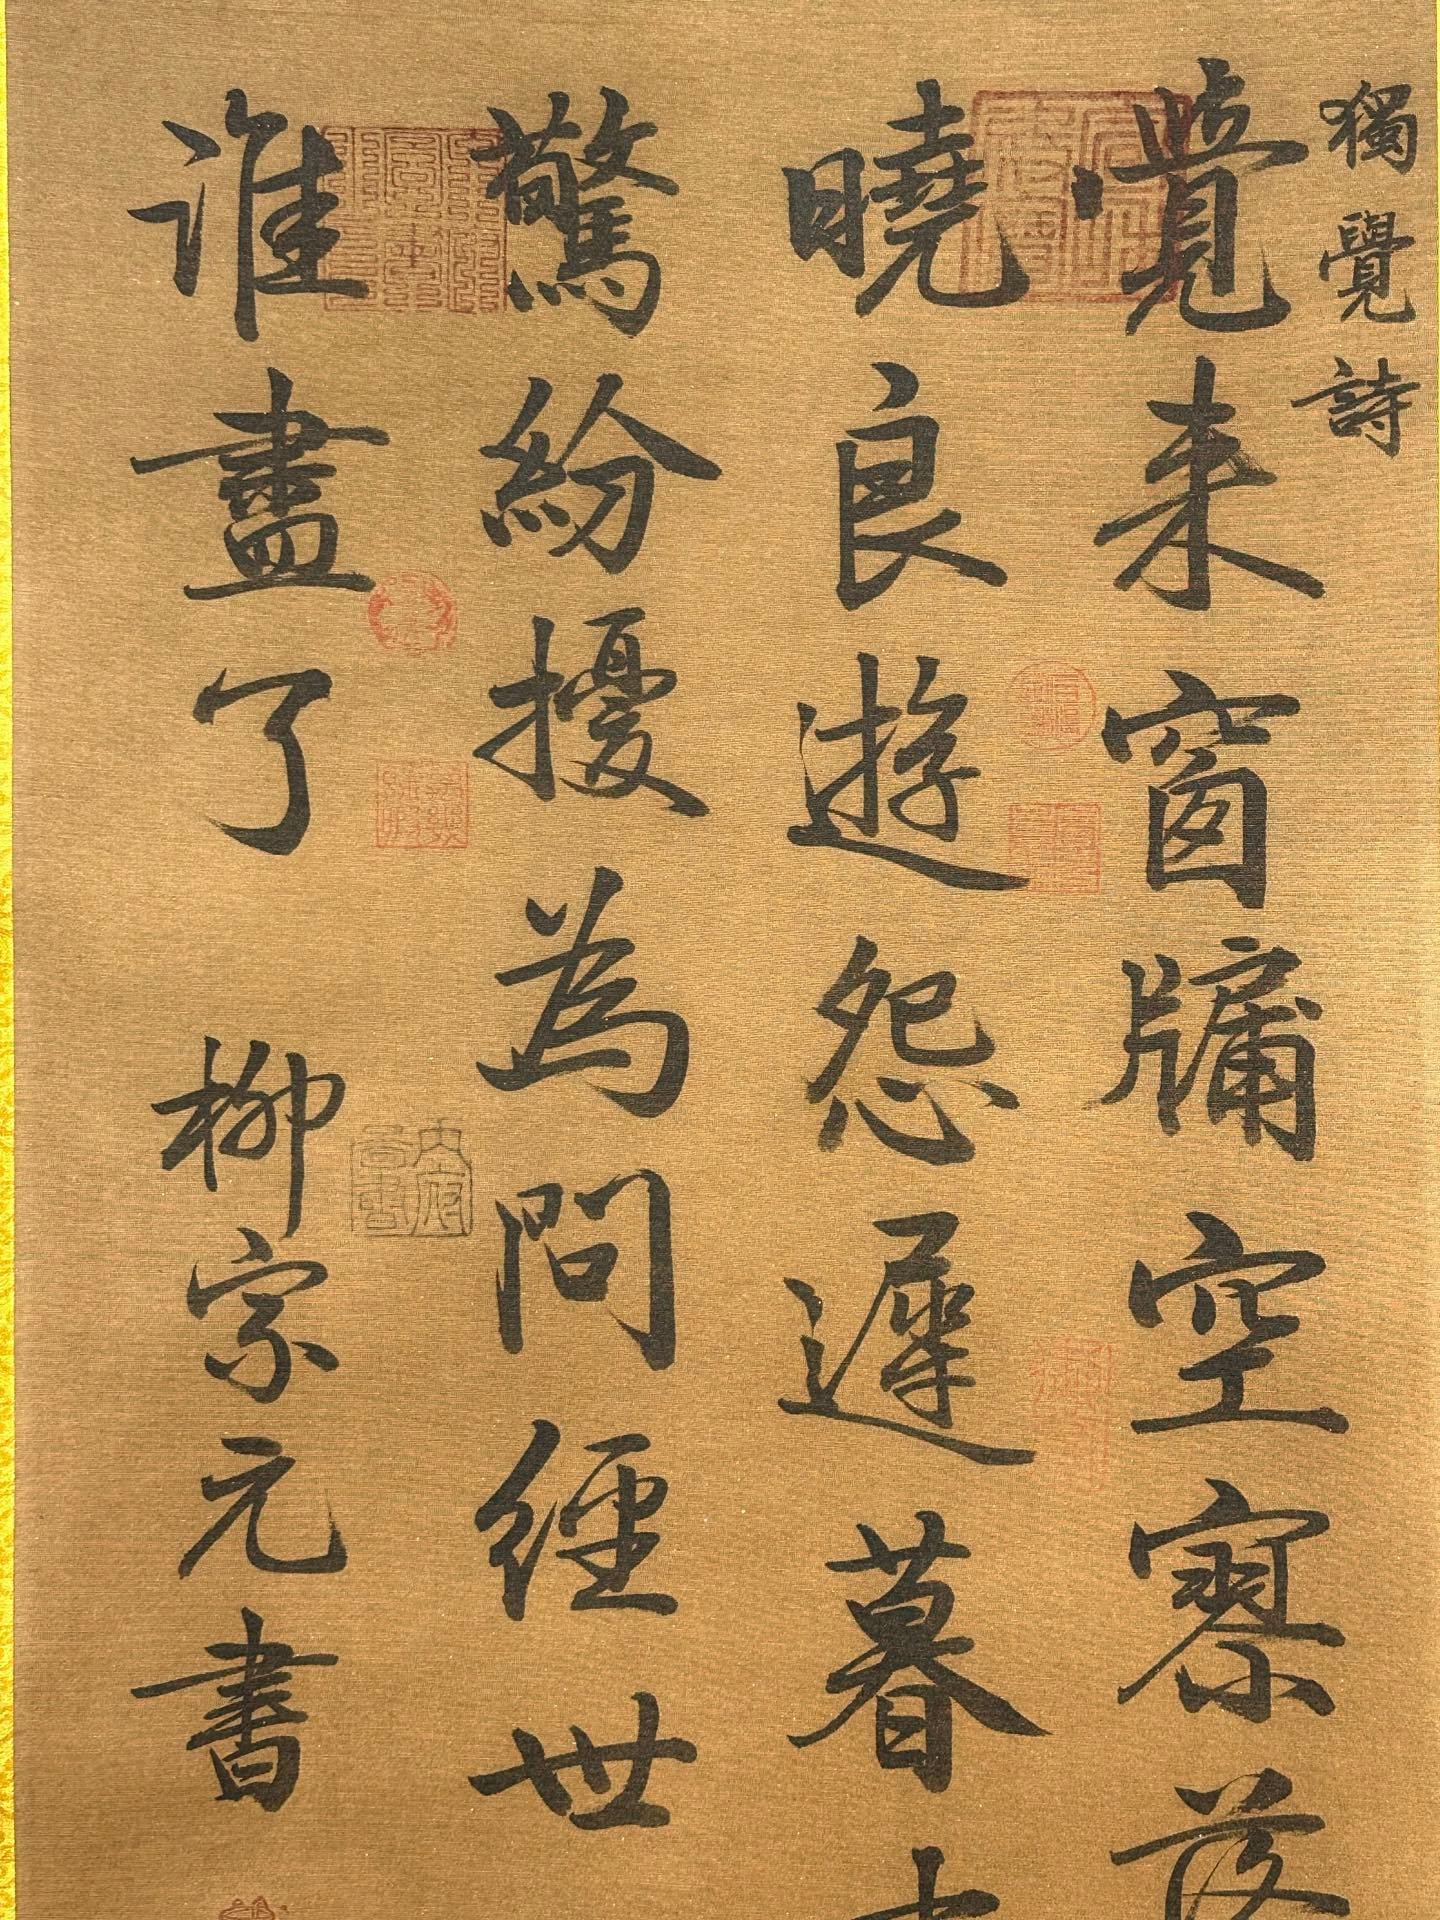 獨覺詩
覺来窗牖空寥落
曉良遊怨遲暮
驚紛擾為問經世
誰盡了
柳宗元書
內府